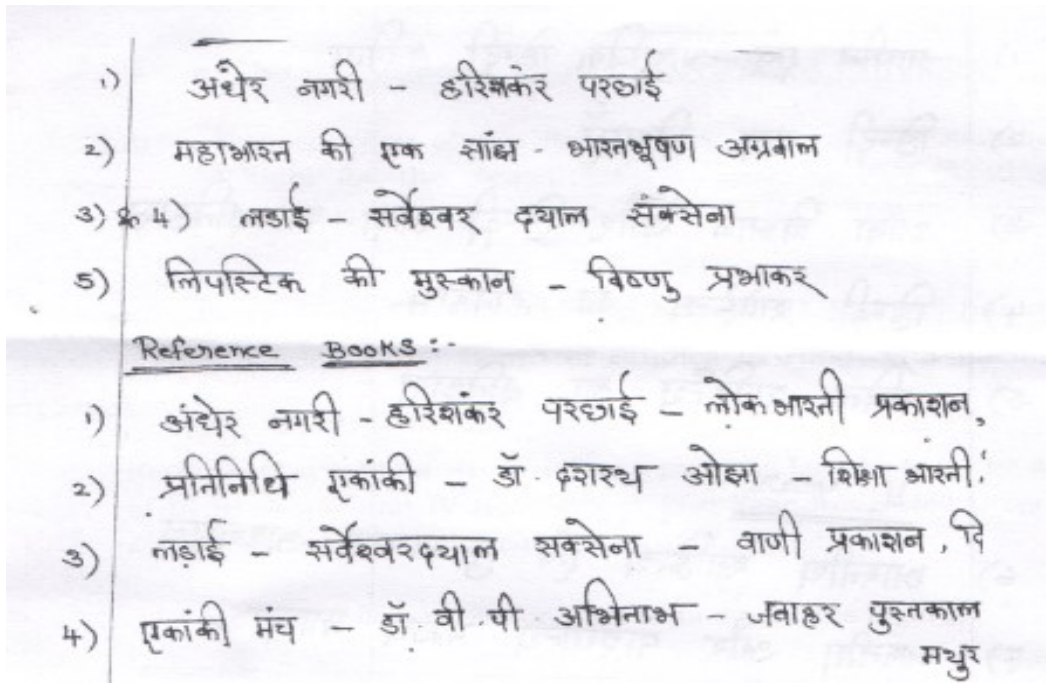 1) अंधेर नगरी - हरिशंकर परछाई
2) महाभारत की एक सांझ - भारतभूषण अग्रवाल
3) & 4) लडाई - सर्वेश्वर दयाल सक्सेना
5) लिपस्टिक की मुस्कान - विष्णु प्रभाकर
Reference Books :-
1) अंधेर नगरी - हरिशंकर परछाई - लोकभारती प्रकाशन,
2) प्रतिनिधि एकांकी - डॉ. दशरथ ओझा - शिक्षा भारती,
3) लड़ाई - सर्वेश्वरदयाल सक्सेना - वाणी प्रकाशन, दि
4) एकांकी मंच - डॉ वी.पी अभिनाभ - जवाहर पुस्तकाल
मथुर